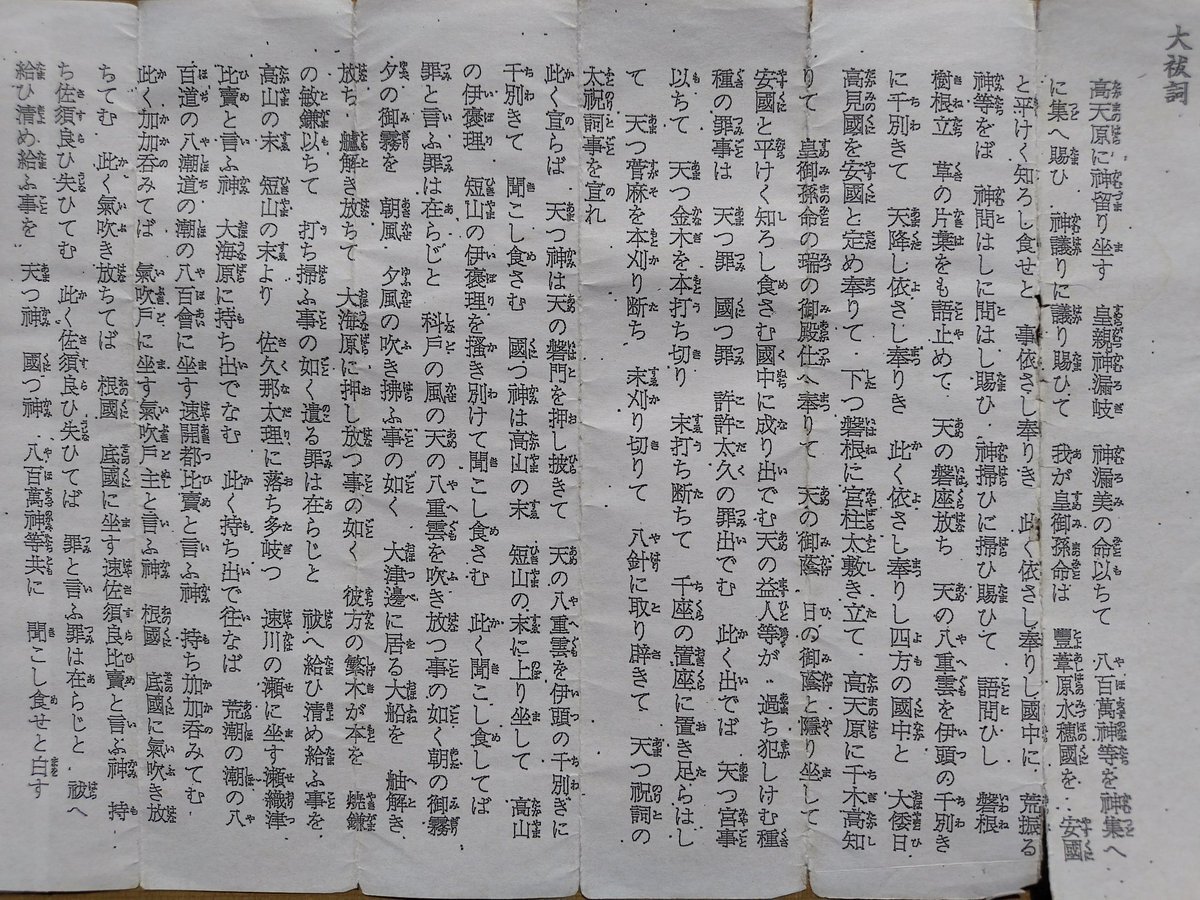 大祓詞
高天原に神留り坐す　皇親神漏岐　神漏美の命以ちて　八百萬神等を神集へ
に集へ賜ひ　神議りに議り賜ひて　我が皇御孫命は　豐葦原水穗國を　安國
と平けく知ろし食せと　事依さし奉りき　此く依さし奉りし國中に　荒振る
神等をば　神問はしに問はし賜ひ　神掃ひに掃ひ賜ひて　語問ひし　磐根
樹根立　草の片葉をも語止めて　天の磐座放ち　天の八重雲を伊頭の千別き
に千別きて　天降し依さし奉りき　此く依さし奉りし四方の國中と　大倭日
高見國を安國と定め奉りて　下つ磐根に宮柱太敷き立て　高天原に千木高知
りて　皇御孫命の瑞の御殿仕へ奉りて　天の御蔭　日の御蔭と隱り坐して
安國と平けく知ろし食さむ國中に成り出でむ天の益人等が　過ち犯しけむ種
種の罪事は　天つ罪　國つ罪　許許太久の罪出でむ　此く出でば　天つ宮事
以ちて　天つ金木を本打ち切り　末打ち断ちて　千座の置座に置き足らはし
て　天つ菅麻を本刈り断ち　末刈り切りて　八針に取り辟きて　天つ祝詞の
太祝詞事を宣れ
此く宣らば　天つ神は天の磐門を押し披きて　天の八重雲を伊頭の千別きに
千別きて　聞こし食さむ　國つ神は高山の末　短山の末に上り坐して　高山
の伊褒理　短山の伊褒理を搔き別けて聞こし食さむ　此く聞こし食してば
罪と言ふ罪は在らじと　科戸の風の天の八重雲を吹き放つ事の如く　朝の御霧
夕の御霧を　朝風　夕風の吹き拂ふ事の如く　大津邊に居る大船を　舳解き
放ち　艫解き放ちて　大海原に押し放つ事の如く　彼方の繁木が本を　燒鎌
の敏鎌以ちて　打ち掃ふ事の如く　遺る罪は在らじと　祓へ給ひ清め給ふ事を
高山の末　短山の末より　佐久那太理に落ち多岐つ　速川の瀬に坐す瀬織津
比賣と言ふ神　大海原に持ち出でなむ　此く持ち出で往なば　荒潮の潮の八
百道の八潮道の潮の八百會に坐す速開都比賣と言ふ神　持ち加加呑みてむ
此く加加呑みてば　氣吹戸に坐す氣吹戸主と言ふ神　根國　底國に氣吹き放
ちてむ　此く氣吹き放ちてば　根國　底國に坐す速佐須良比賣と言ふ神　持
ち佐須良ひ失ひてむ　此く佐須良ひ失ひてば　罪と言ふ罪は在らじと　祓へ
給ひ清め給ふ事を　天つ神　國つ神　八百萬神等共に　聞こし食せと白す